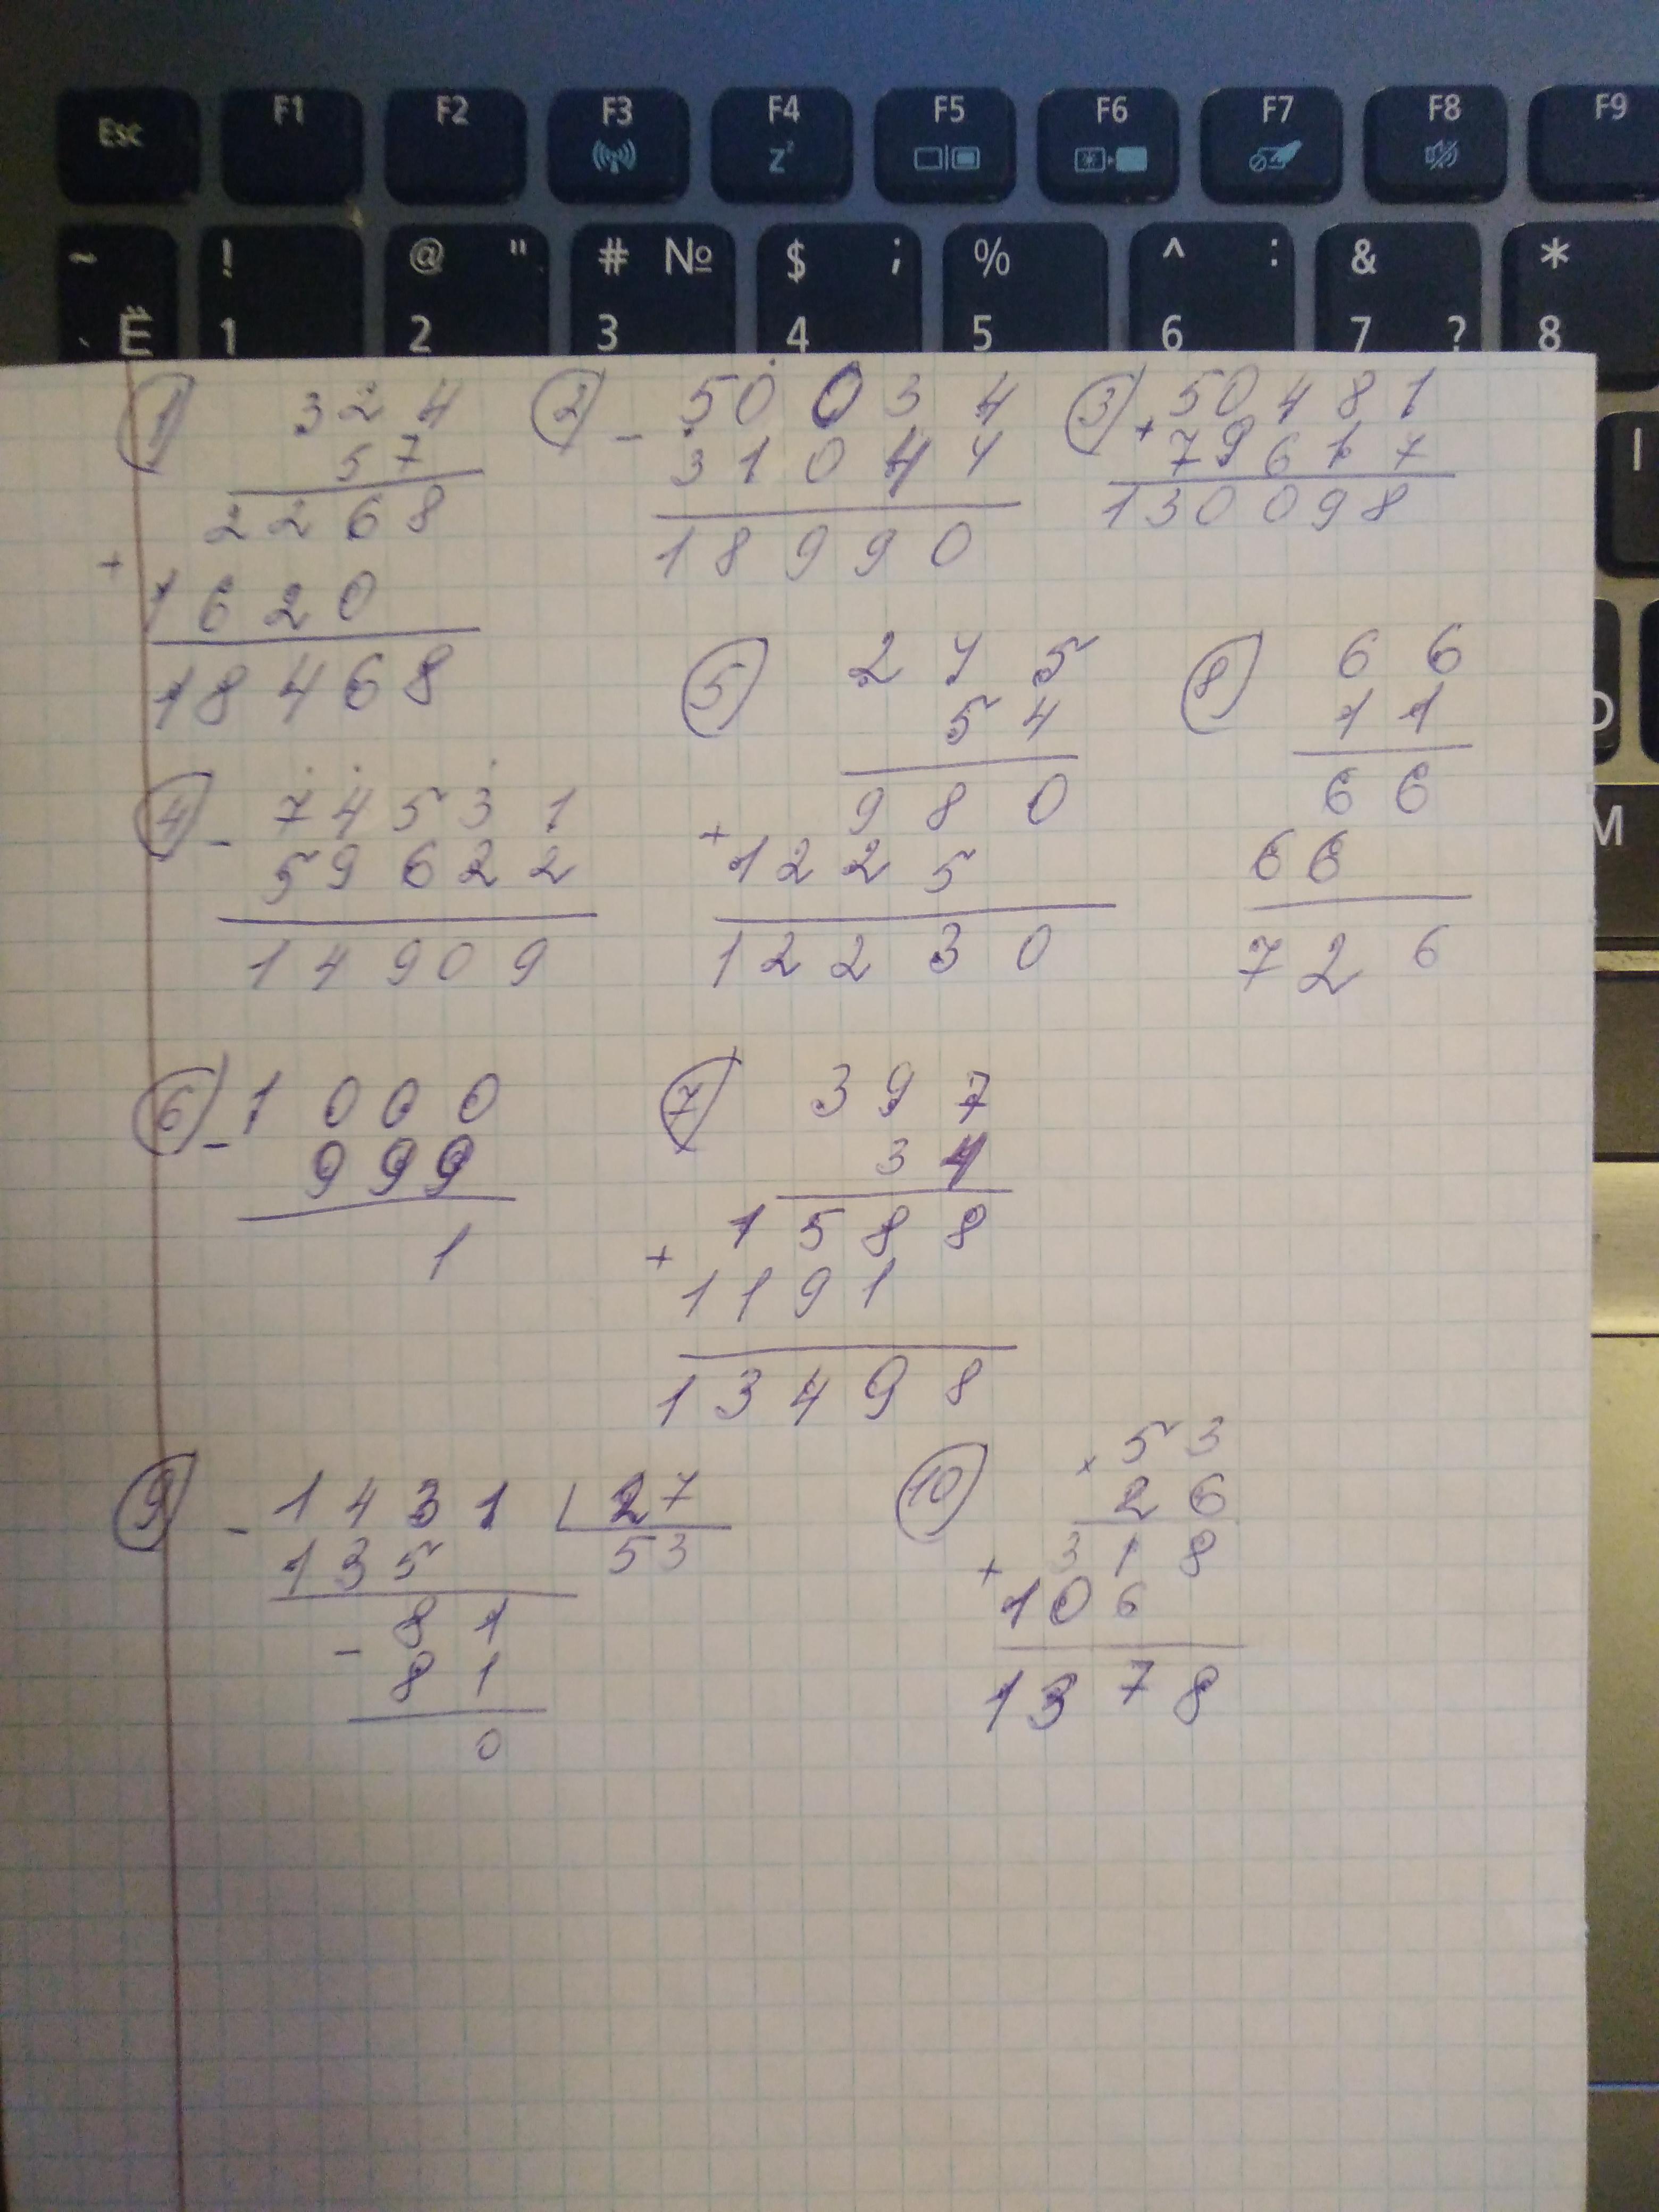 Esc F1 F2 F3 F4 F5 F6 F7 F8 F9
Z²
~ ! @ " # № $ ; % ^ : & *
Ё 1 2 3 4 5 6 7 ? 8
① 324
57
2268
+ 1620
18468
② - 50034
31044
18990
③ + 50481
79617
130098
④ - 74531
59622
14909
⑤ 245
54
980
+ 1225
12230
⑧ 66
11
66
66
726
⑥ - 1000
999
1
⑦ 397
34
1588
+ 1191
13498
⑨ - 1431 | 27
135 53
- 81
81
0
⑩ × 53
26
+ 318
106
1378
M